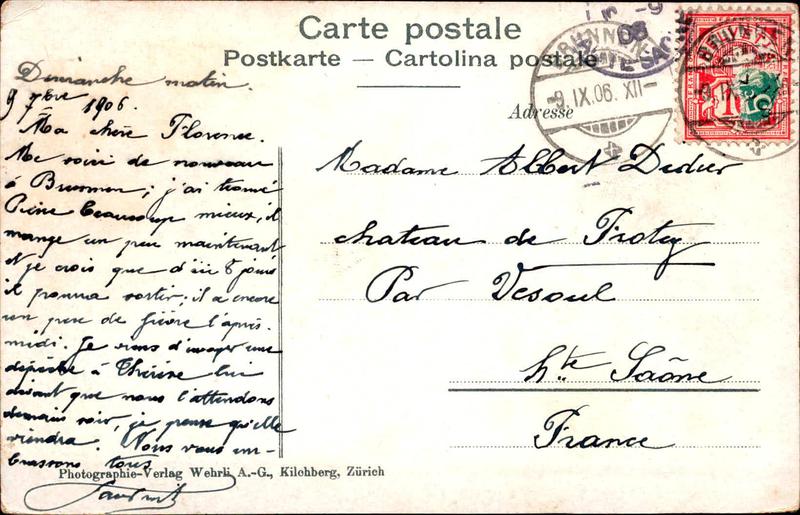 Carte postale
Postkarte — Cartolina postale
Adresse
BRUNNEN
9. IX. 06. XII
Dimanche matin.
9 7bre 1906.
Ma chère Florence.
Me voici de nouveau
à Brunnen; j'ai trouvé
Pierre beaucoup mieux, il
mange un peu maintenant
et je crois que d'ici 8 jours
il pourra sortir; il a encore
un peu de fièvre l'après-
midi. Je viens d'envoyer une
dépêche à Thérèse lui
disant que nous l'attendons
demain soir, je pense qu'elle
viendra. Nous vous em-
brassons tous
Madame Albert Didier
château de Frotey
Par Vesoul
hte Saône
France
Photographie-Verlag Wehrli A.-G., Kilchberg, Zürich